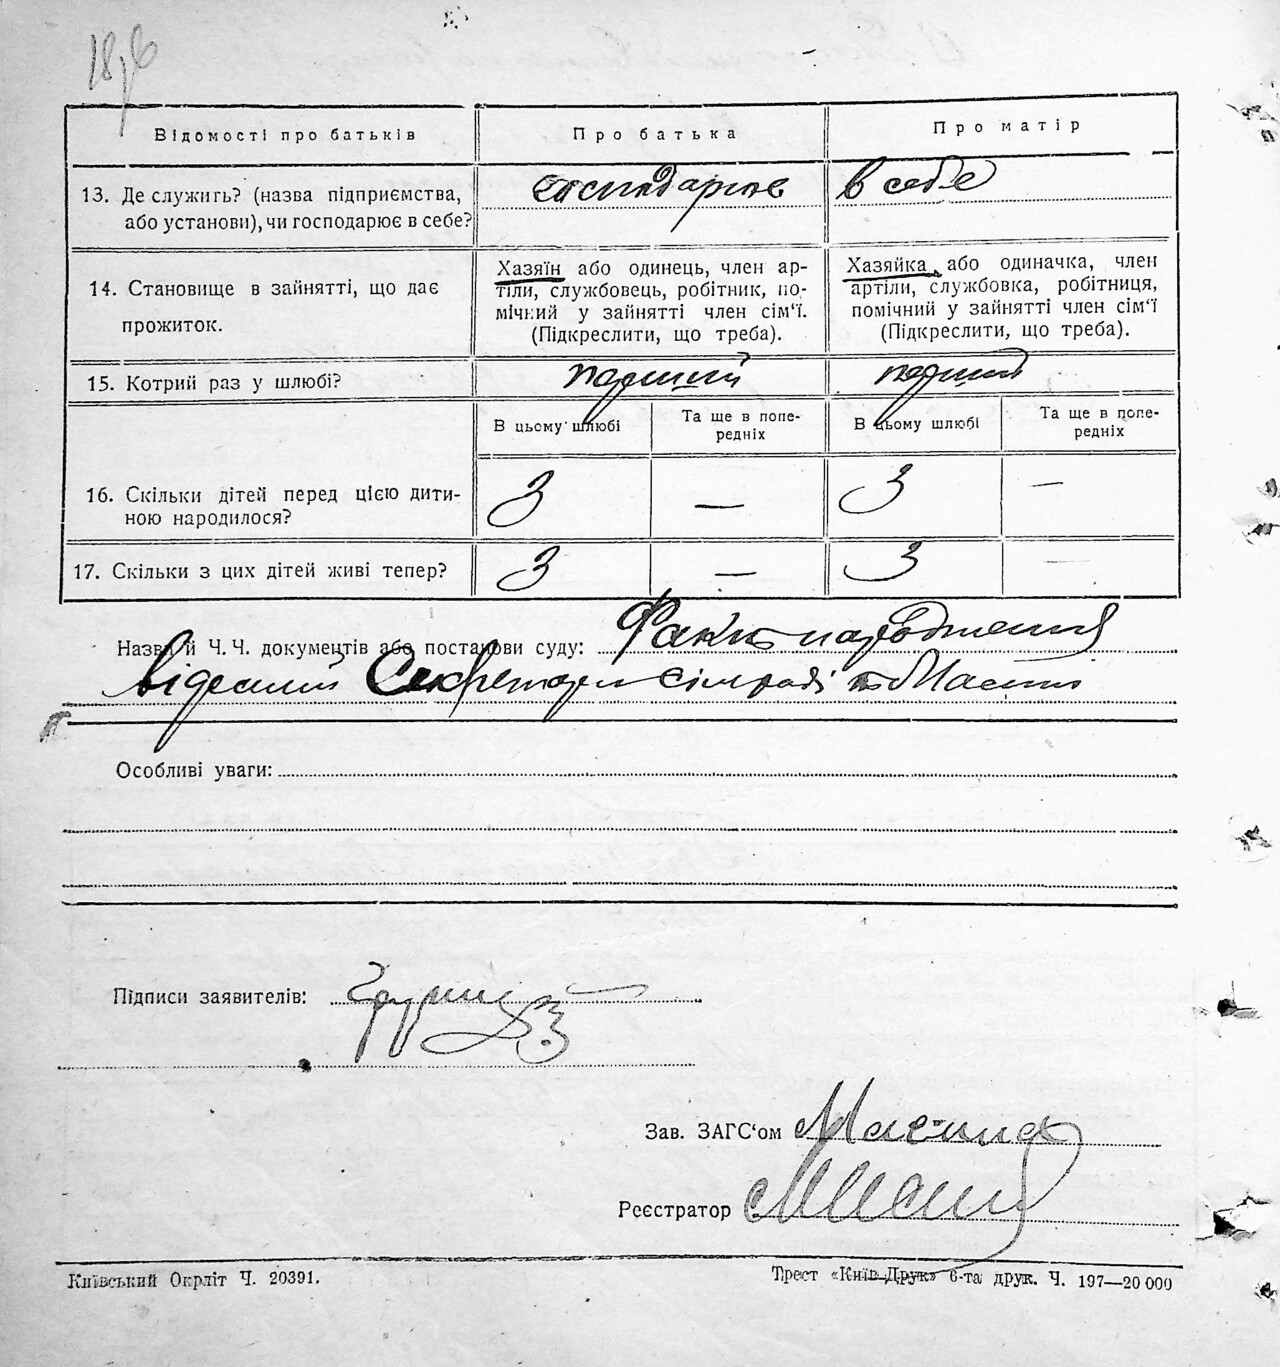 18
Відомості про батьків
Про батька
Про матір
13. Де служить? (назва підприємства,
або установи), чи господарює в себе?
господарює в себе
14. Становище в зайнятті, що дає
прожиток.
Хазяїн або одинець, член ар-
тіли, службовець, робітник, по-
мічний у зайнятті член сім‘ї.
(Підкреслити, що треба).
Хазяйка, або одиначка, член
артіли, службовка, робітниця,
помічний у зайнятті член сім‘ї
(Підкреслити, що треба).
15. Котрий раз у шлюбі?
перший
перший
В цьому шлюбі
Та ще в попе-
редніх
В цьому шлюбі
Та ще в попе-
редніх
16. Скільки дітей перед цією дити-
ною народилося?
3 — 3 —
17. Скільки з цих дітей живі тепер?
3 — 3 —
Назви й Ч. Ч. документів або постанови суду: Факт народження
відомий Секретарю сільради
Особливі уваги:
Підписи заявителів:
Зав. ЗАГС‘ом
Реєстратор
Київський Окрліт Ч. 20391.
Трест «Київ-Друк» 6-та друк. Ч. 197—20 000